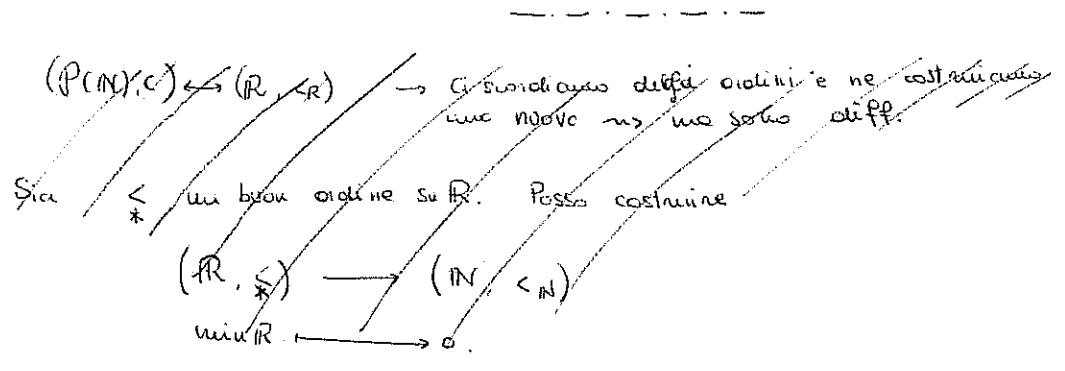 (P(ℕ), ⊂) ↔ (ℝ, <ℝ) → Ci scordiamo degli ordini e ne costruiamo
uno nuovo ⇝ ma sono diff.
Sia <* un buon ordine su ℝ. Posso costruire
(ℝ, <*) ⟶ (ℕ, <ℕ)
min ℝ ⟼ 0.